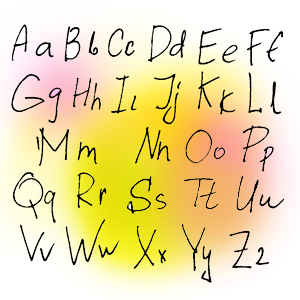 Aa Bb Cc Dd Ee Ff
Gg Hh Ii Jj Kk Ll
Mm Nn Oo Pp
Qq Rr Ss Tt Uu
Vv Ww Xx Yy Zz